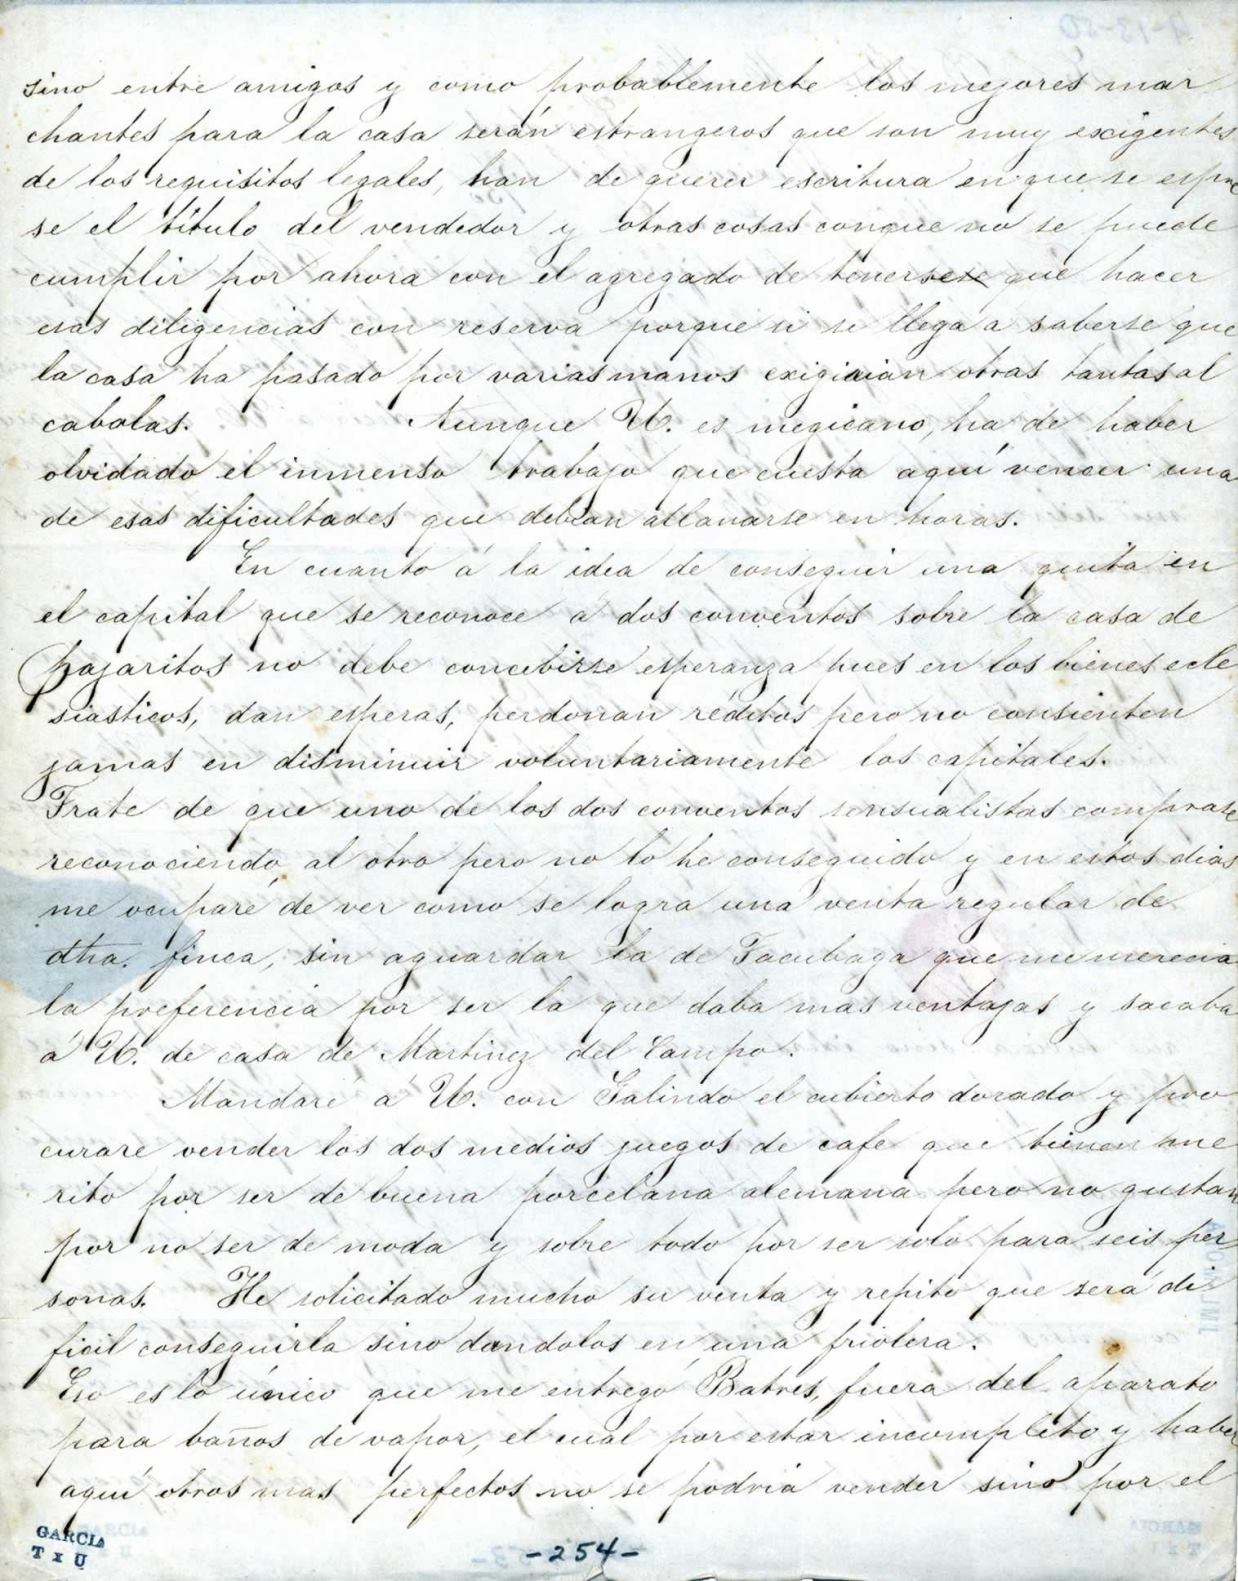 sino entre amigos y como probablemente los mejores mar
chantes para la casa serán estrangeros que son muy ecsigentes
de los requisitos legales, han de querer escritura en que se espre
se el título del vendedor y otras cosas conque no se puede
cumplir por ahora con el agregado de tenerse que hacer
esas diligencias con reserva porque si se llega a saberse que
la casa ha pasado por varias manos exigirian otras tantas al
cabalas. Aunque U. es megicano, ha de haber
olvidado el inmenso trabajo que cuesta aquí vencer una
de esas dificultades que debian allanarse en horas.
En cuanto á la idea de conseguir una quita en
el capital que se reconoce á dos conventos sobre la casa de
Pajaritos no debe concebirse esperanza pues en los bienes ecle
siasticos, dan esperas, perdonan réditos pero no consienten
jamas en disminuir voluntariamente los capitales.
Trate de que uno de los dos conventos sensualistas comprase
reconociendo al otro pero no lo he conseguido y en estos dias
me ocuparé de ver como se logra una venta regular de
dha. finca, sin aguardar la de Tacubaya que me merecia
la preferencia por ser la que daba mas ventajas y sacaba
á U. de casa de Martinez del Campo.
Mandaré á U. con Galindo el cubierto dorado y pro
curare vender los dos medios juegos de cafe que tienen mé
rito por ser de buena porcelana alemana pero no gustan
por no ser de moda y sobre todo por ser solo para seis per
sonas. He solicitado mucho su venta y repito que será di
ficil conseguirla sino dandolos en una friolera.
Eso es lo único que me entregó Batres, fuera del aparato
para baños de vapor, el cual por estar incompleto y haber
aquí otros mas perfectos no se podria vender sino por el
GARCIA
-254-